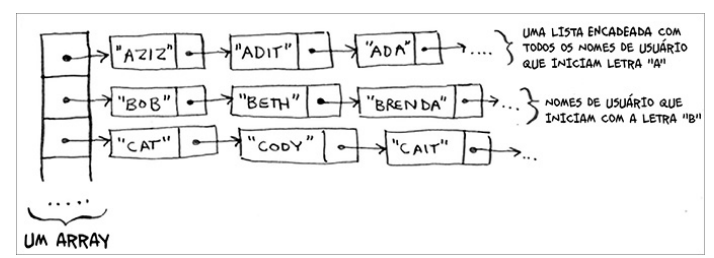 "AZIZ" "ADIT" "ADA" ....
UMA LISTA ENCADEADA COM
TODOS OS NOMES DE USUÁRIO
QUE INICIAM LETRA "A"
"BOB" "BETH" "BRENDA" ...
NOMES DE USUÁRIO QUE
INICIAM COM A LETRA "B"
"CAT" "CODY" "CAIT" ...
.....
UM ARRAY